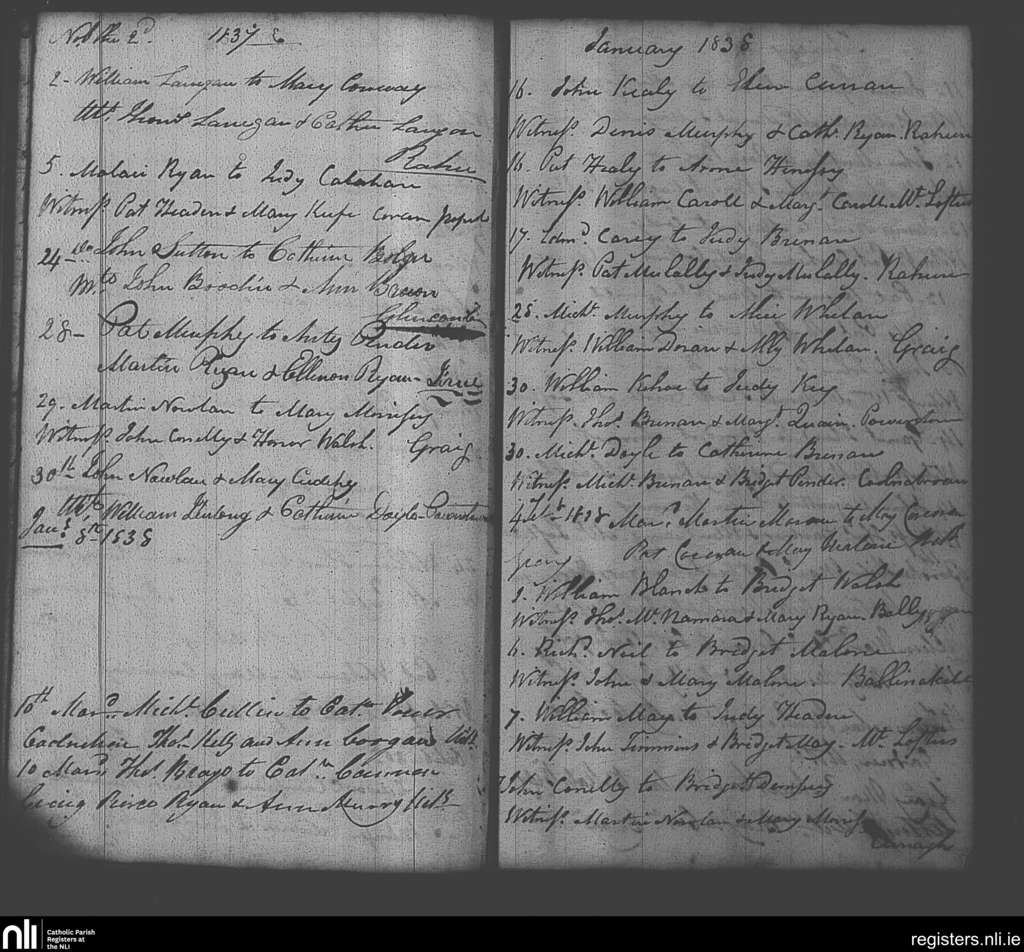 Nob. the 2d. 1837
2 - William Lanigan to Mary Conway
Lanigan & Cathn Langan
Rahee
5. Malaci Ryan to Judy Calahan
Witness Pat Headen & Mary Keefe
24 John Sutton to Cathrin Bolger
John Brodie & Ann Brown
28 - Pat Murphy to Pinder
Martin Ryan & Ellenon Ryan -
29. Martin Nowlan to Mary Morissey
Witness John Conelly & Honor Walsh. Graig
30th John Nowlan & Mary Cudihy
William & Cathrin Doyle
Jany 8th 1838
10th Mard. Michl. Cullin to Cath Power
Thos. Kelly and Ann Coogan
10 Mard Thos. to Cath
Craig Pierce Ryan & Ann
January 1838
16. John Kealy to Ellen Curran
Witness. Denis Murphy & Cath. Ryan. Raheen
16. Pat Healy to Hennesy
Witness William Caroll & Mary. Caroll. Mt. Loftus
17. Edmd. Carey to Judy Brenan
Witness. Pat Mulally & Judy Mulally. Raheen
28. Michl. Murphy to Alice Whelan
Witness. William Doran & Ally Whelan. Graig
30. William Kehoe to Judy
Witness. Thos. Brenan & Margt. Quain. Powerstown
30. Michl. Doyle to Catherine Brenan
Witness. Michl. Brenan & Bridget Pinder. Coolnabrown
4 Feb. 1838 Mard Martin to May Corcoran
Pat Corcoran & May Malone
William Blanch to Bridget Walsh
Witness. Thos. McNamara & Mary Ryan. Bally
6. Richd. Neil to Bridget Malone
Witness. John & Mary Malone.
7. William May to Judy Headen
Witness John Timmins & Bridget May. Mt. Loftus
John Conelly to Bridget Dempsey
Witness. Martin Nowlan & Mary
nli
Catholic Parish
Registers at
the NLI
registers.nli.ie